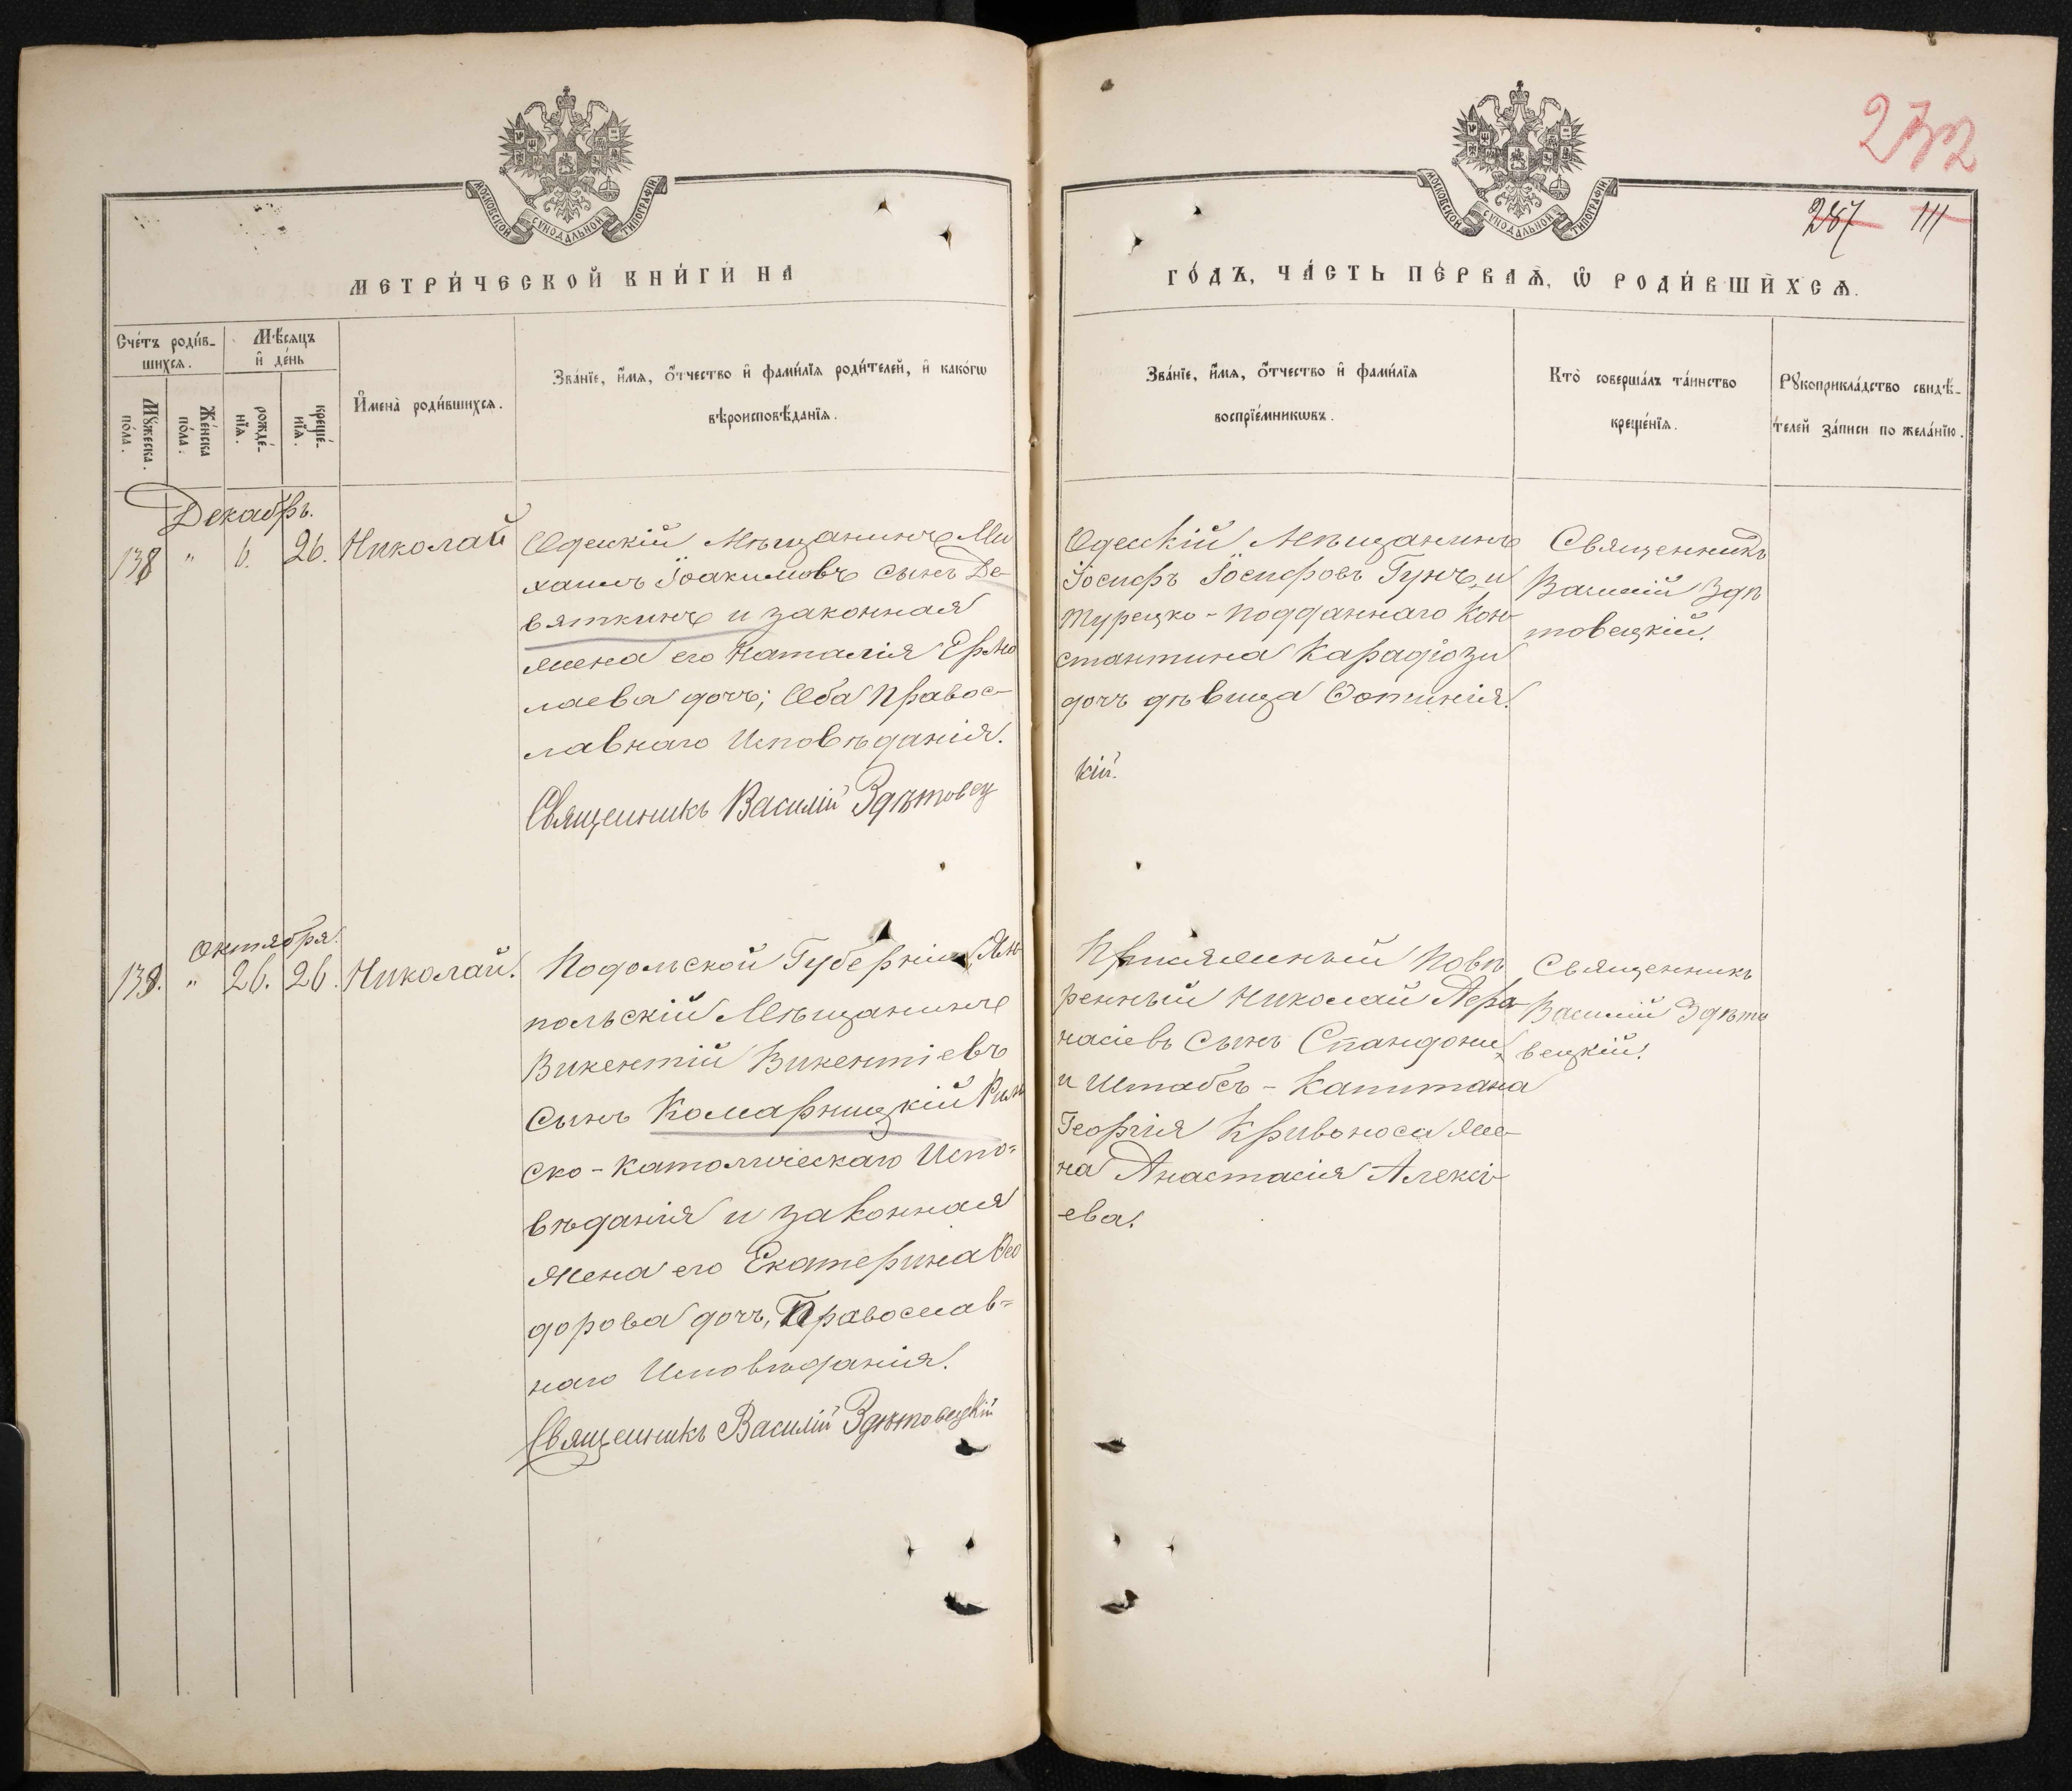 232
МОСКОВСКОЙ СУНОДАЛЬНОЙ ТИПОГРАФІИ
МОСКОВСКОЙ СУНОДАЛЬНОЙ ТИПОГРАФІИ
287 111
МЕТРИ́ЧЕСКОЙ КНИ́ГИ НА
ГО́ДЪ, ЧА́СТЬ ПЕ́РВАѦ, Ѡ РОДИ́ВШИХСѦ.
Сче́тъ роди́в-
шихсѧ.
Мѣ́сяцъ
и де́нь
Мꙋ́жеска
по́ла.
Же́нска
по́ла.
рожде́-
нїѧ.
креще́-
нїѧ.
Имена̀ роди́вшихсѧ.
Зва́нїе, и́мѧ, о́тчество и фами́лїѧ роди́телей, и како́гѡ
вѣроисповѣ́данїѧ.
Зва́нїе, и́мѧ, о́тчество и фами́лїѧ
воспрїе́мникѡвъ.
Кто̀ соверша́лъ та́инство
креще́нїѧ.
Рꙋкоприкла́дство свидѣ́-
телей за́писи по жела́нїю.
Декабрь.
138 " 6. 26. Николай
Одескій Мѣщанинъ Ми
хаилъ Іоакимовъ сынъ Де-
вяткинъ и законная
жена его Наталія Ермо
лаева дочь; Оба Правос-
лавнаго Исповѣданія.
Священникъ Василій Здѣтовец
Одескій Мѣщанинъ
Іосифъ Іосифовъ Гунъ, и
Турецко-подданнаго Кон-
стантина Карадіози
дочь дѣвица Фотинія.
кій.
Священникъ
Василій Здѣ
товецкій.
Октября.
139. " 26. 26. Николай.
Подольской Губерніи, Ям
польскій Мѣщанинъ
Викентій Викентіевъ
сынъ Комарницкій Рим
ско-католическаго Испо-
вѣданія и законная
жена его Екатерина Ѳео
дорова дочь, Православ-
наго Исповѣданія.
Священникъ Василій Здѣтовецкій
Присяжный Повѣ
ренный Николай Афа
насіевъ Сынъ Спандони,
и Штабсъ-Капитана
Георгія Кривоноса же-
на Анастасія Алексі-
ева.
Священникъ
Василій Здѣто
вецкій.